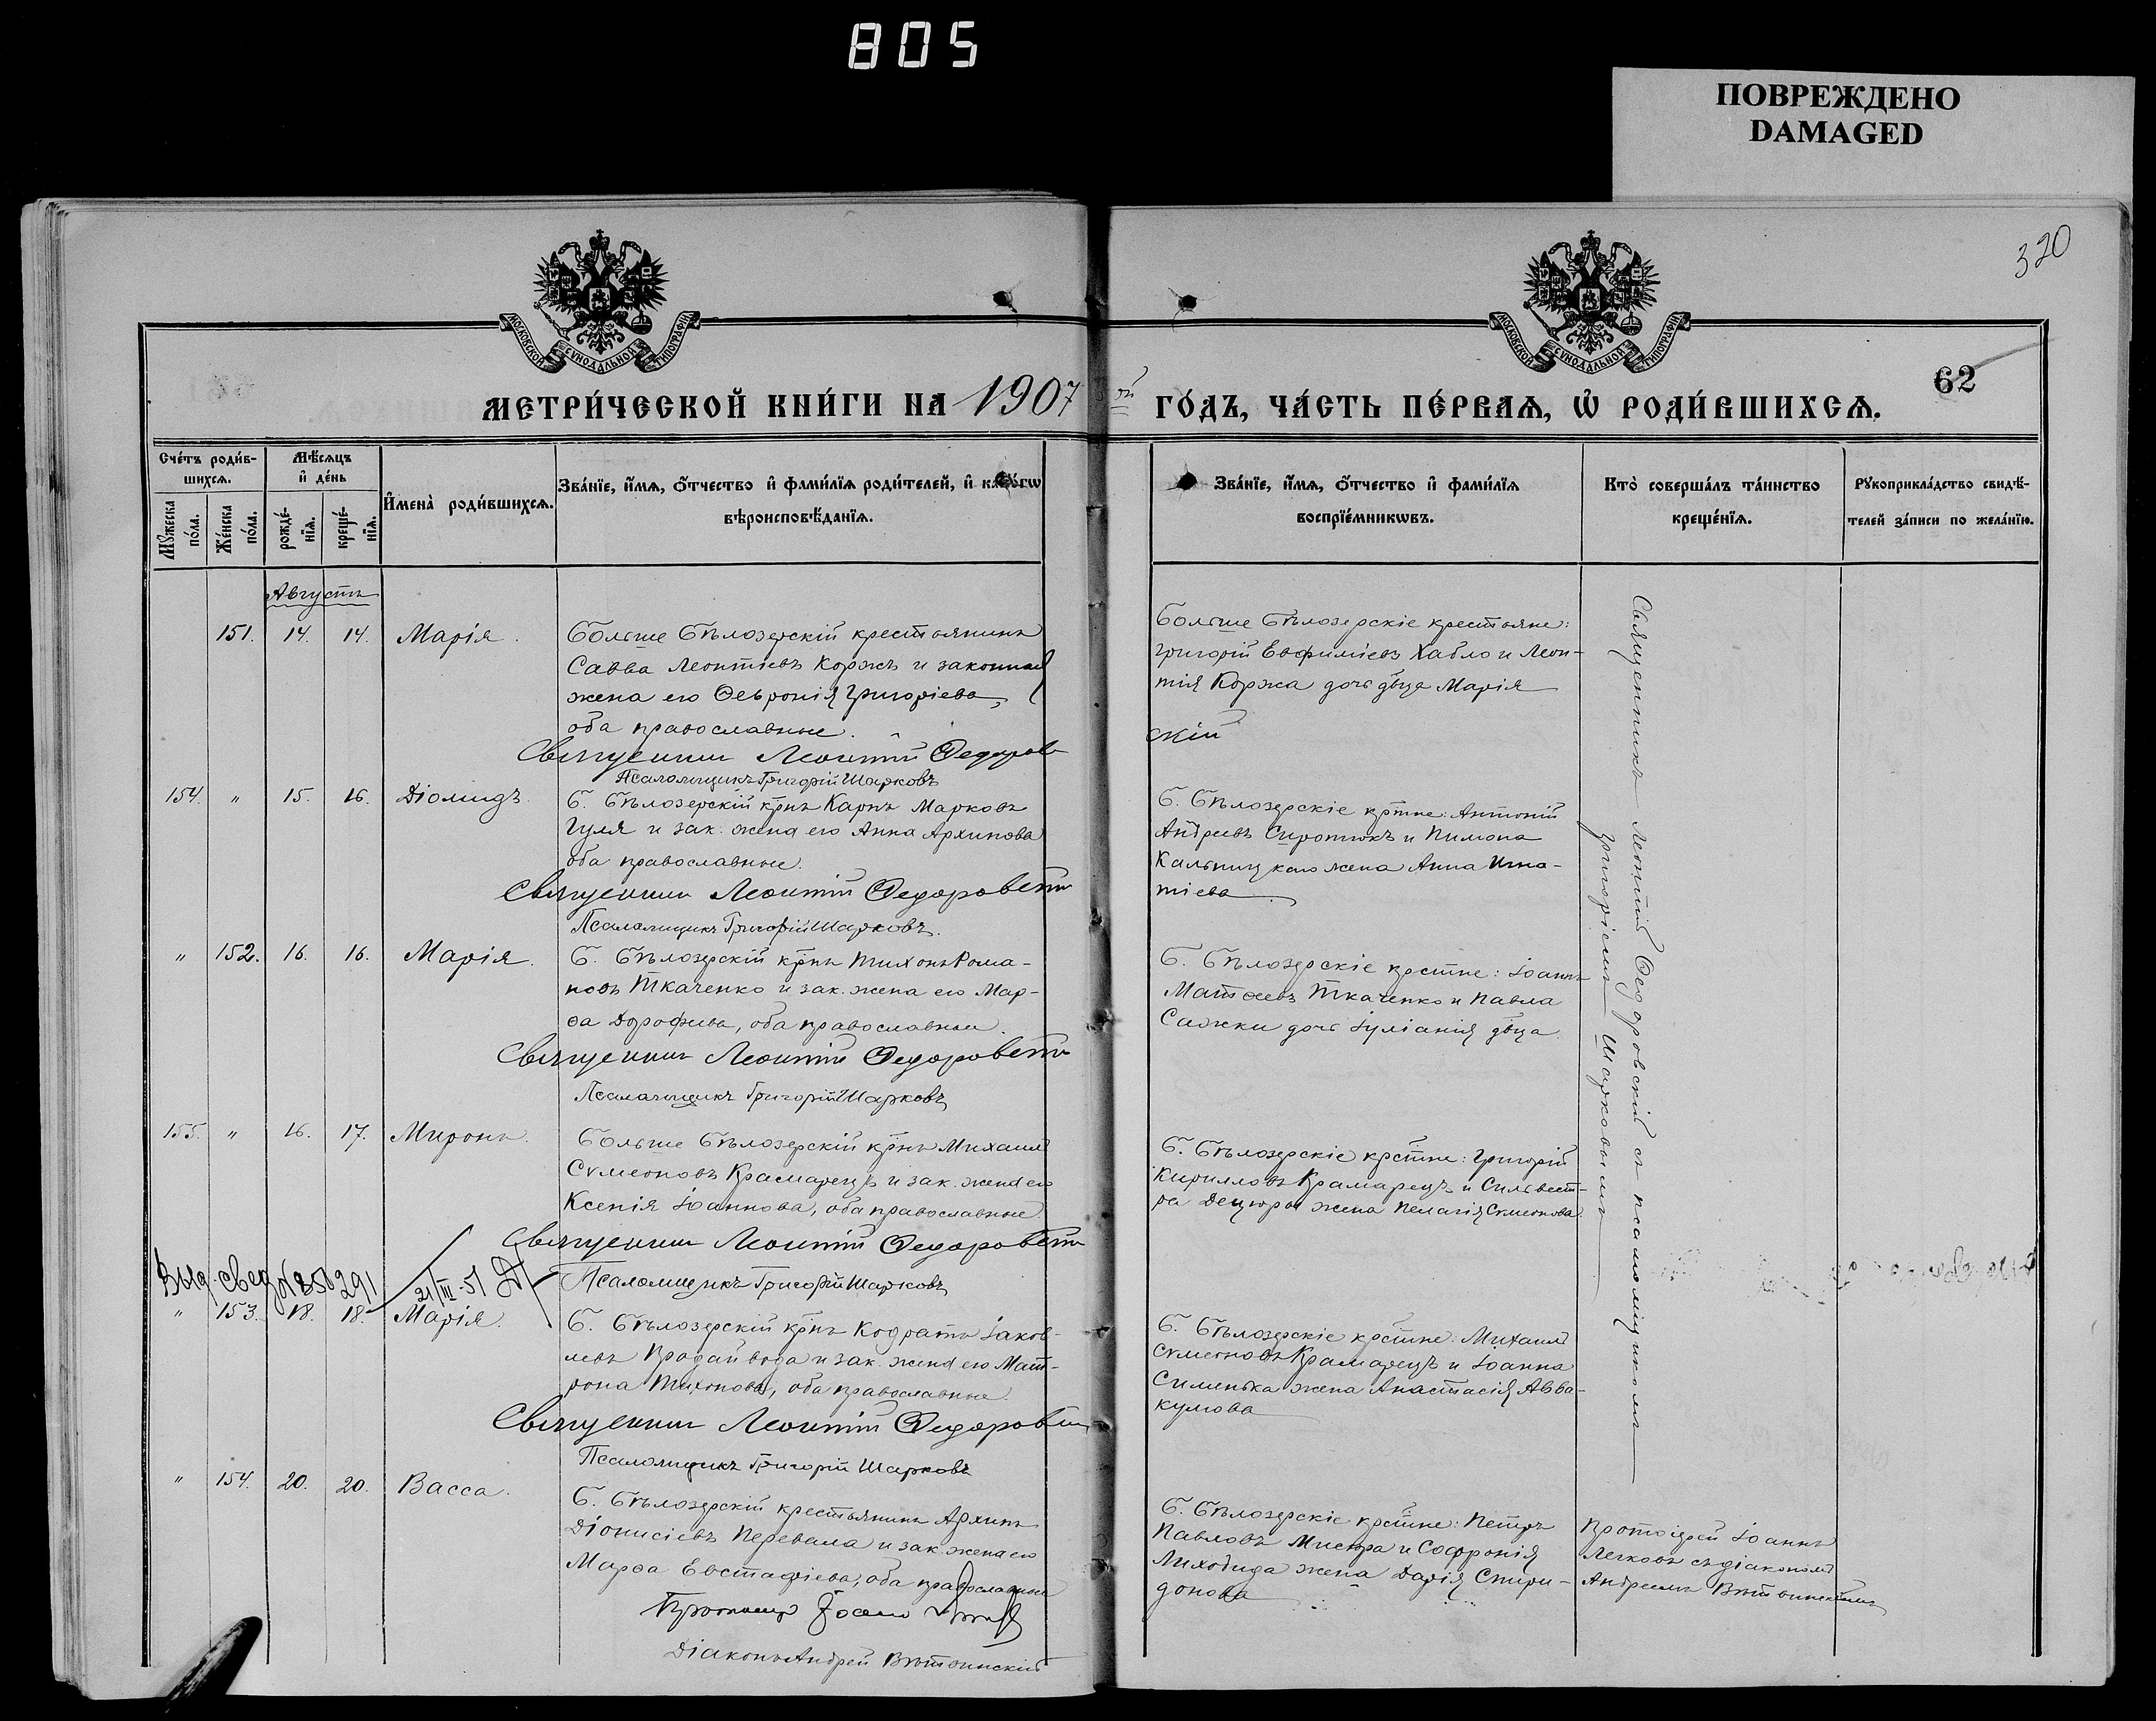 805
ПОВРЕЖДЕНО
DAMAGED
320
МОСКОВСКОЙ СѴНОДАЛЬНОЙ ТИПОГРАФІИ
МОСКОВСКОЙ СѴНОДАЛЬНОЙ ТИПОГРАФІИ
62
МЕТРИ́ЧЕСКОЙ КНИ́ГИ НА 1907 ой ГО́ДЪ, ЧА́СТЬ ПЕ́РВАѦ, Ѡ҆ РОДИ́ВШИХСѦ.
Счéтъ роди́в-
шихсѧ.
Мꙋ́жеска по́ла.
Же́нска по́ла.
Мѣ́сѧцъ
и҆ де́нь
рожде́-
нїѧ.
креще́-
нїѧ.
И҆мена̀ роди́вшихсѧ.
Зва́нїе, и҆́мѧ, ѻ҆́тчество и҆ фами́лїѧ роди́телей, и҆ како́гѡ
вѣроисповѣ́данїѧ.
Зва́нїе, и҆́мѧ, ѻ҆́тчество и҆ фами́лїѧ
воспрїе́мникѡвъ.
Кто̀ соверша́лъ та́инство
креще́нїѧ.
Рꙋкоприкла́дство свидѣ́-
телей за́писи по жела́нїю.
Августъ
151. 14. 14. Марія.
Больше Бѣлозерскій крестьянинъ
Савва Леонтіевъ Коржъ и законная
жена его Ѳевронія Григоріева,
оба православные.
Священникъ Леонтій Ѳедоров
скій
Псаломщикъ Григорій Шарковъ
Больше Бѣлозерскіе крестьяне:
Григорій Евфиміевъ Хабло и Леон-
тія Коржа дочь дѣвца Марія
Священникъ Леонтій Ѳедоровскій съ псаломщикомъ
Григоріемъ Шарковымъ
154. " 15. 16. Діомидъ.
Б. Бѣлозерскій крнъ Карпъ Марковъ
Гуля и зак. жена его Анна Архипова
оба православные.
Священникъ Леонтій Ѳедоровскій
Псаломщикъ Григорій Шарковъ.
Б. Бѣлозерскіе крстне: Антоній
Андреевъ Сиротюкъ и Пимона
Кальницкаго жена Анна Игна-
тіева.
" 152. 16. 16. Марія.
Б. Бѣлозерскій крнъ Тихонъ Рома-
новъ Ткаченко и зак. жена его Мар-
ѳа Дорофеева, оба православные.
Священникъ Леонтій Ѳедоровскій
Псаломщикъ Григорій Шарковъ
Б. Бѣлозерскіе крстне: Іоаннъ
Матѳеевъ Ткаченко и Павла
Сажки дочь Іуліанія дѣвца.
155. " 16. 17. Миронъ.
Больше Бѣлозерскій крнъ Михаилъ
Сѵмеоновъ Крамарецъ и зак. жена его
Ксенія Іоаннова, оба православные
Священникъ Леонтій Ѳедоровскій
Псаломщикъ Григорій Шарковъ
Б. Бѣлозерскіе крстне: Григорій
Кирилловъ Крамарецъ и Сильвест-
ра Децюры жена Пелагія Сѵмеонова.
Выд. свед. 21/III-51
" 153. 18. 18. Марія.
Б. Бѣлозерскій крнъ Кодратъ Іаков-
левъ Продайвода и зак. жена его Мат-
рона Тихонова, оба православные.
Священникъ Леонтій Ѳедоровскій
Псаломщикъ Григорій Шарковъ
Б. Бѣлозерскіе крстне: Михаилъ
Сѵмеоновъ Крамарецъ и Іоанна
Сименька жена Анастасія Авва-
кумова
" 154. 20. 20. Васса.
Б. Бѣлозерскій крестьянинъ Архипъ
Діонисіевъ Перевала и зак. жена его
Марѳа Евстафіева, оба православные
Протоіерей Іоаннъ
Діаконъ Андрей Вѣтвинскій
Б. Бѣлозерскіе крстне: Петръ
Павловъ Мисюра и Софронія
Лиходида жена Дарія Спири-
донова
Протоіерей Іоаннъ
Легковъ съ діакономъ
Андреемъ Вѣтвинскимъ